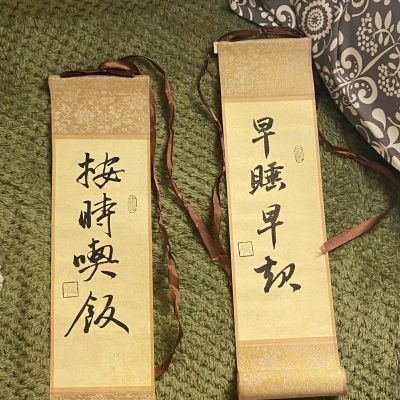 按時喫飯
早睡早起